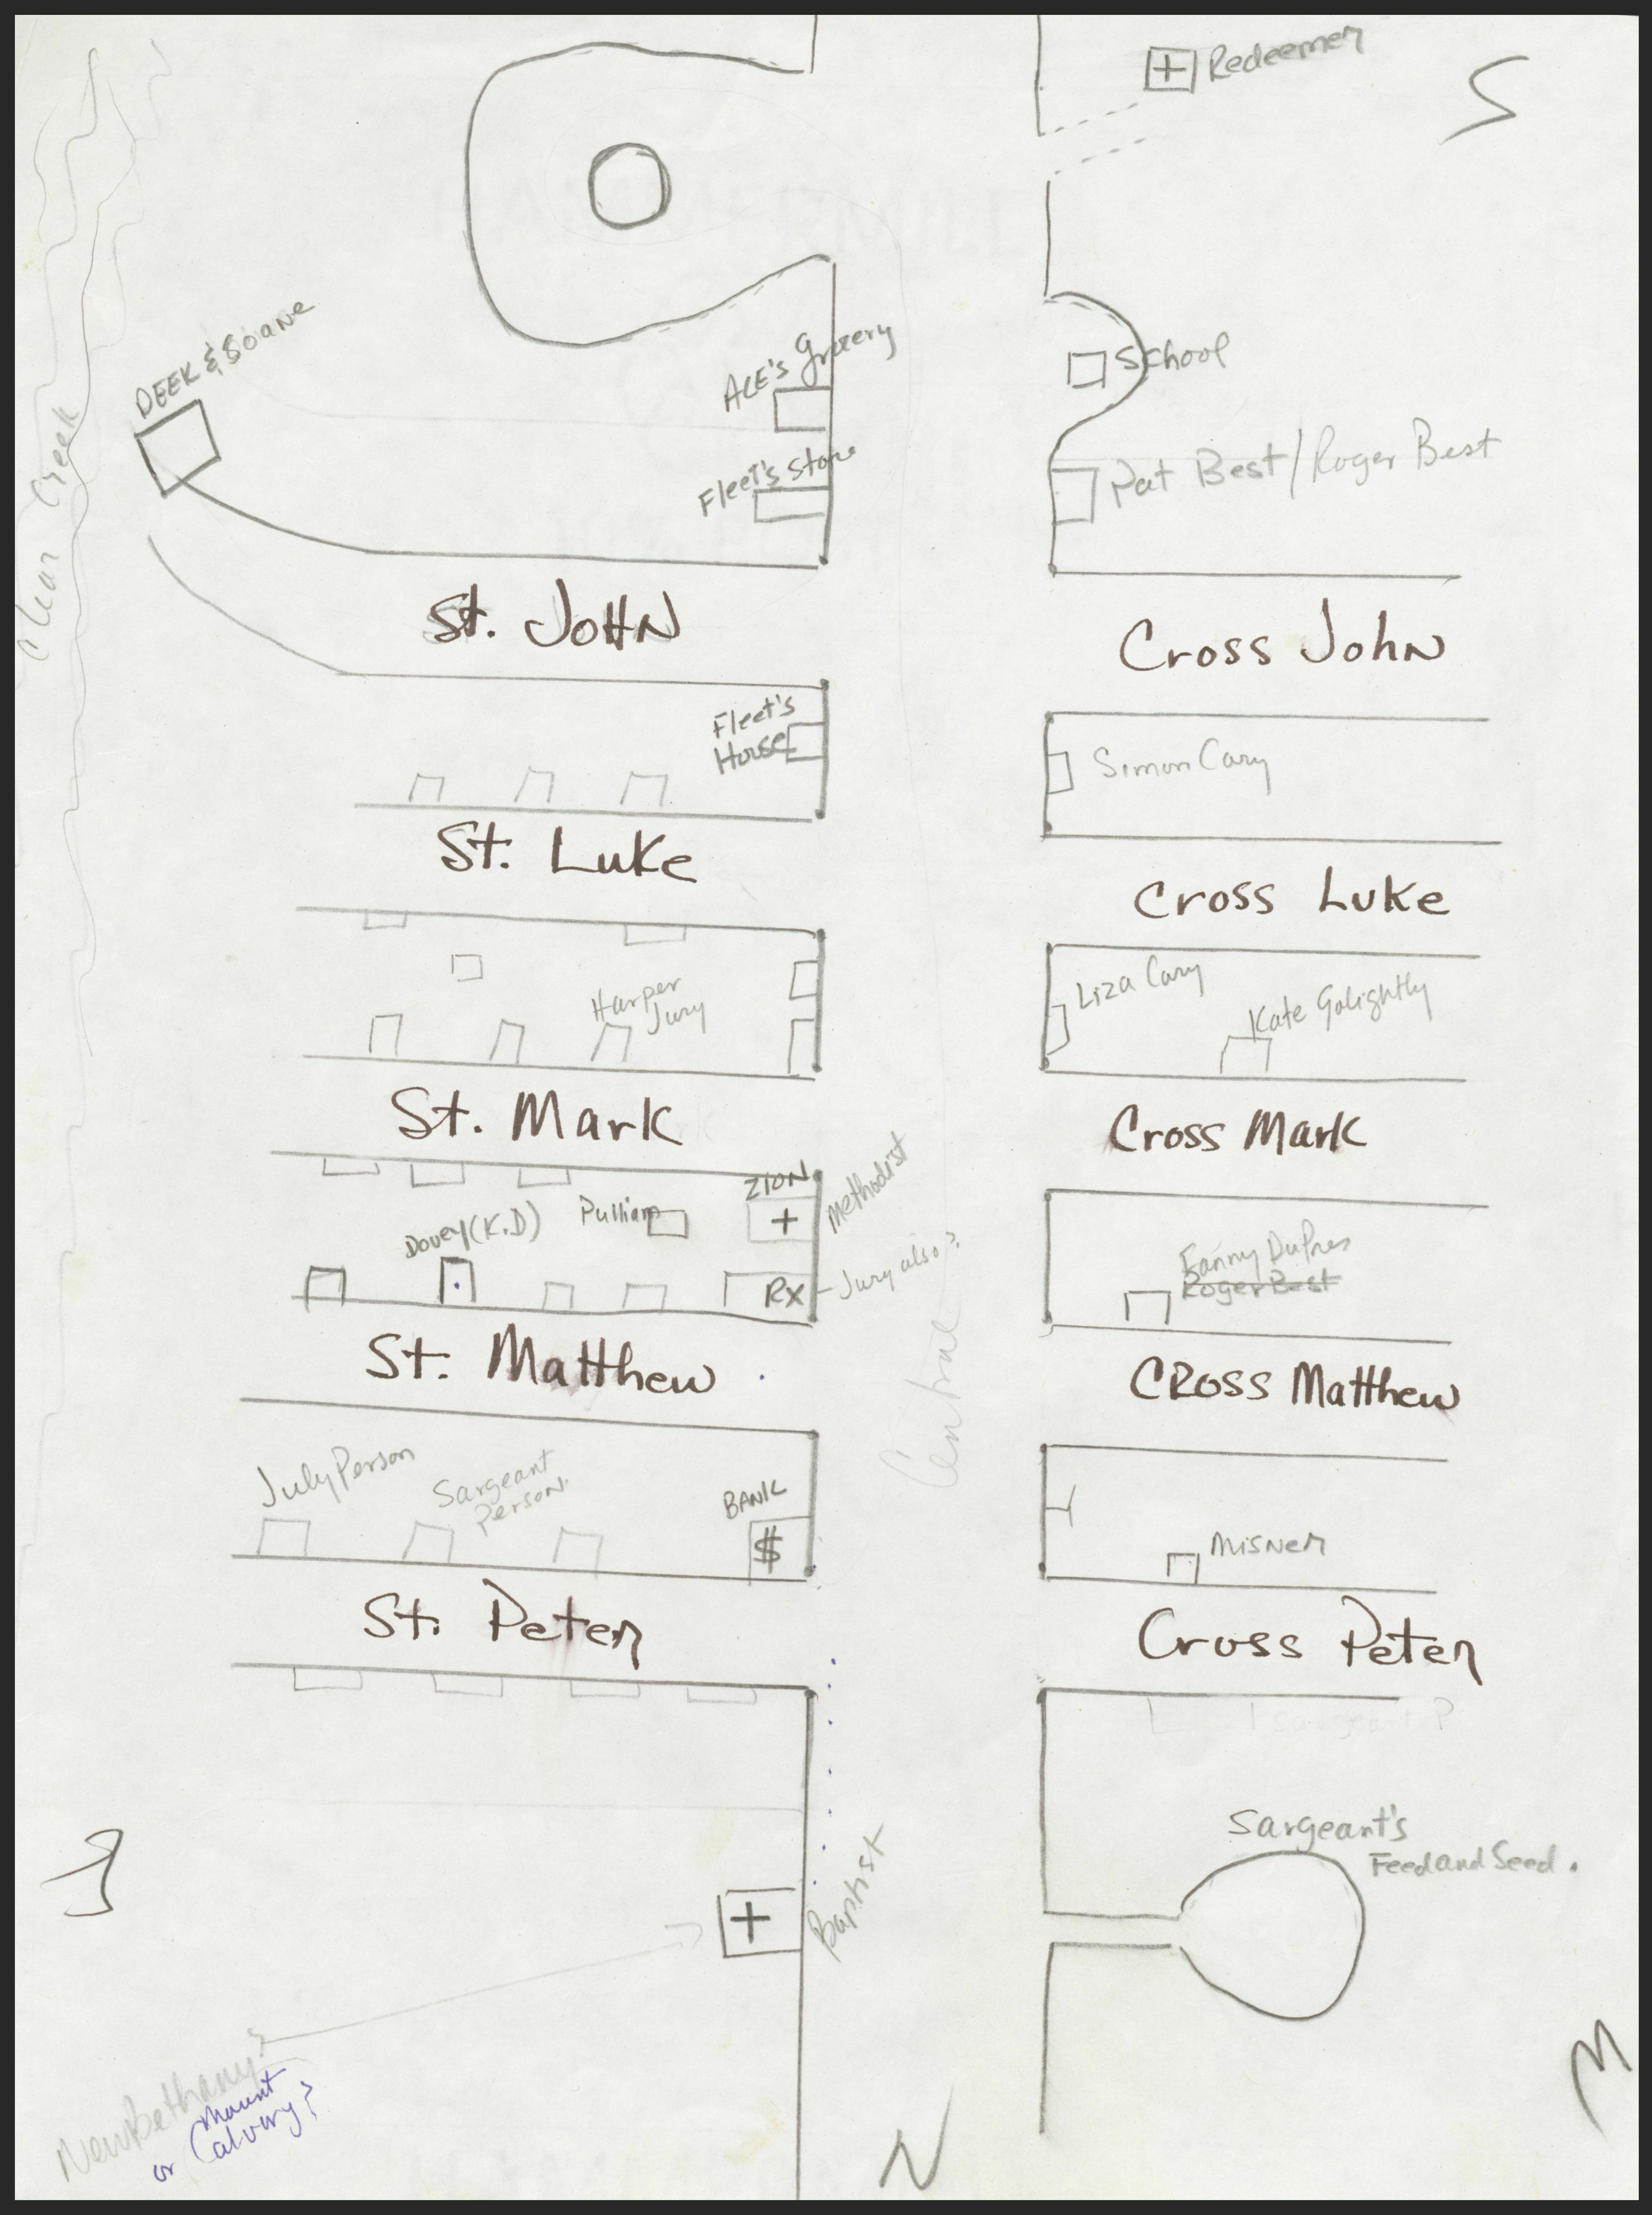 + Redeemer
S
DEEK & SOANE
ACE'S Grocery
School
Fleet's store
Pat Best/Roger Best
Clear Creek
St. JOHN
Cross John
Fleet's
House
Simon Cary
St. Luke
Cross Luke
Harper
Jury
Liza Cary
Kate Golightly
St. Mark
Cross Mark
ZION
+
Methodist
Dovey (K.D)
Pulliam
RX - Jury also?
Fanny DuPres
Roger Best
St. Matthew
CROSS Matthew
Central
July Person
Sargeant
Person.
BANK
$
Misner
St. Peter
Cross Peter
Sargeant P
Sargeant's
Feed and Seed.
E
+
Baptist
New Bethany?
or Mount
Calvary?
N
W